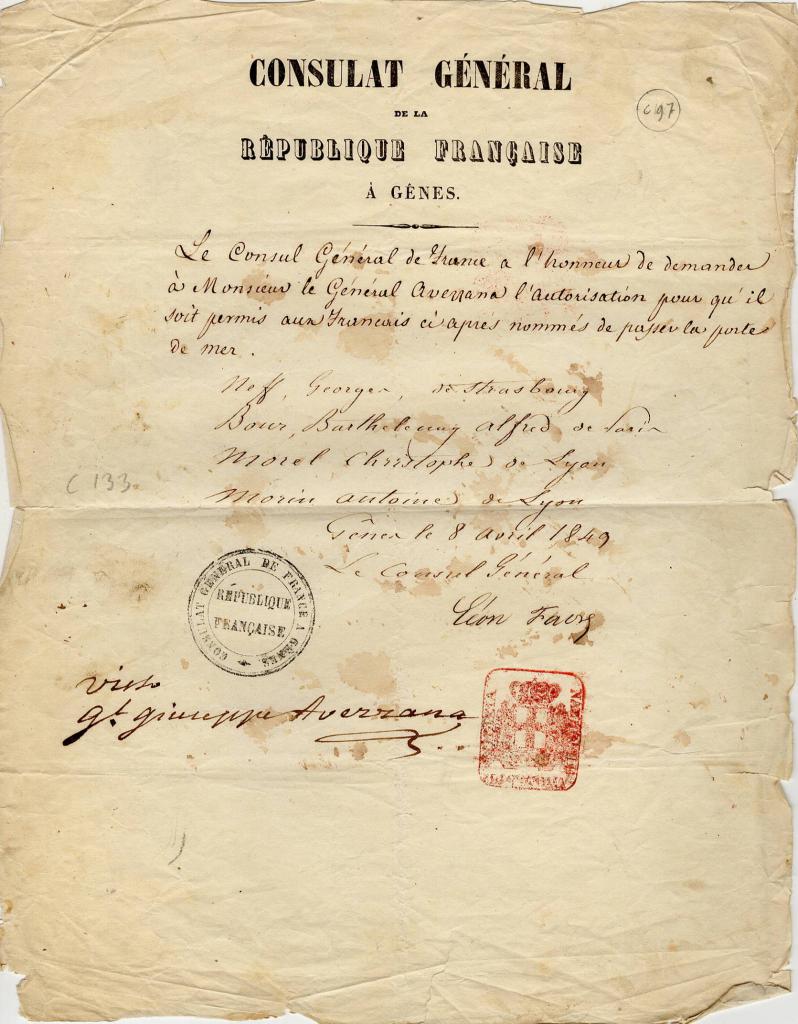 CONSULAT GÉNÉRAL
DE LA
RÉPUBLIQUE FRANÇAISE
À GÊNES.
C 97
Le Consul Général de France a l'honneur de demander
à Monsieur le Général Avezzana l'autorisation pour qu'il
soit permis aux Francais ci après nommés de passer la porte
de mer.
Neff, Georges, de Strasbourg
Bour, Barthelemy alfred de Paris
Morel Christophe de Lyon
Morin antoine de Lyon
C 133
Gênes le 8 avril 1849
Le Consul Général
Léon Favre
CONSULAT GÉNÉRAL DE FRANCE A GÊNES
RÉPUBLIQUE
FRANÇAISE
visto
Gl. Giuseppe Avezzana